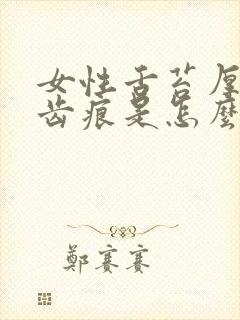 女性舌苔厚
齿痕是怎麼
鄭賽賽